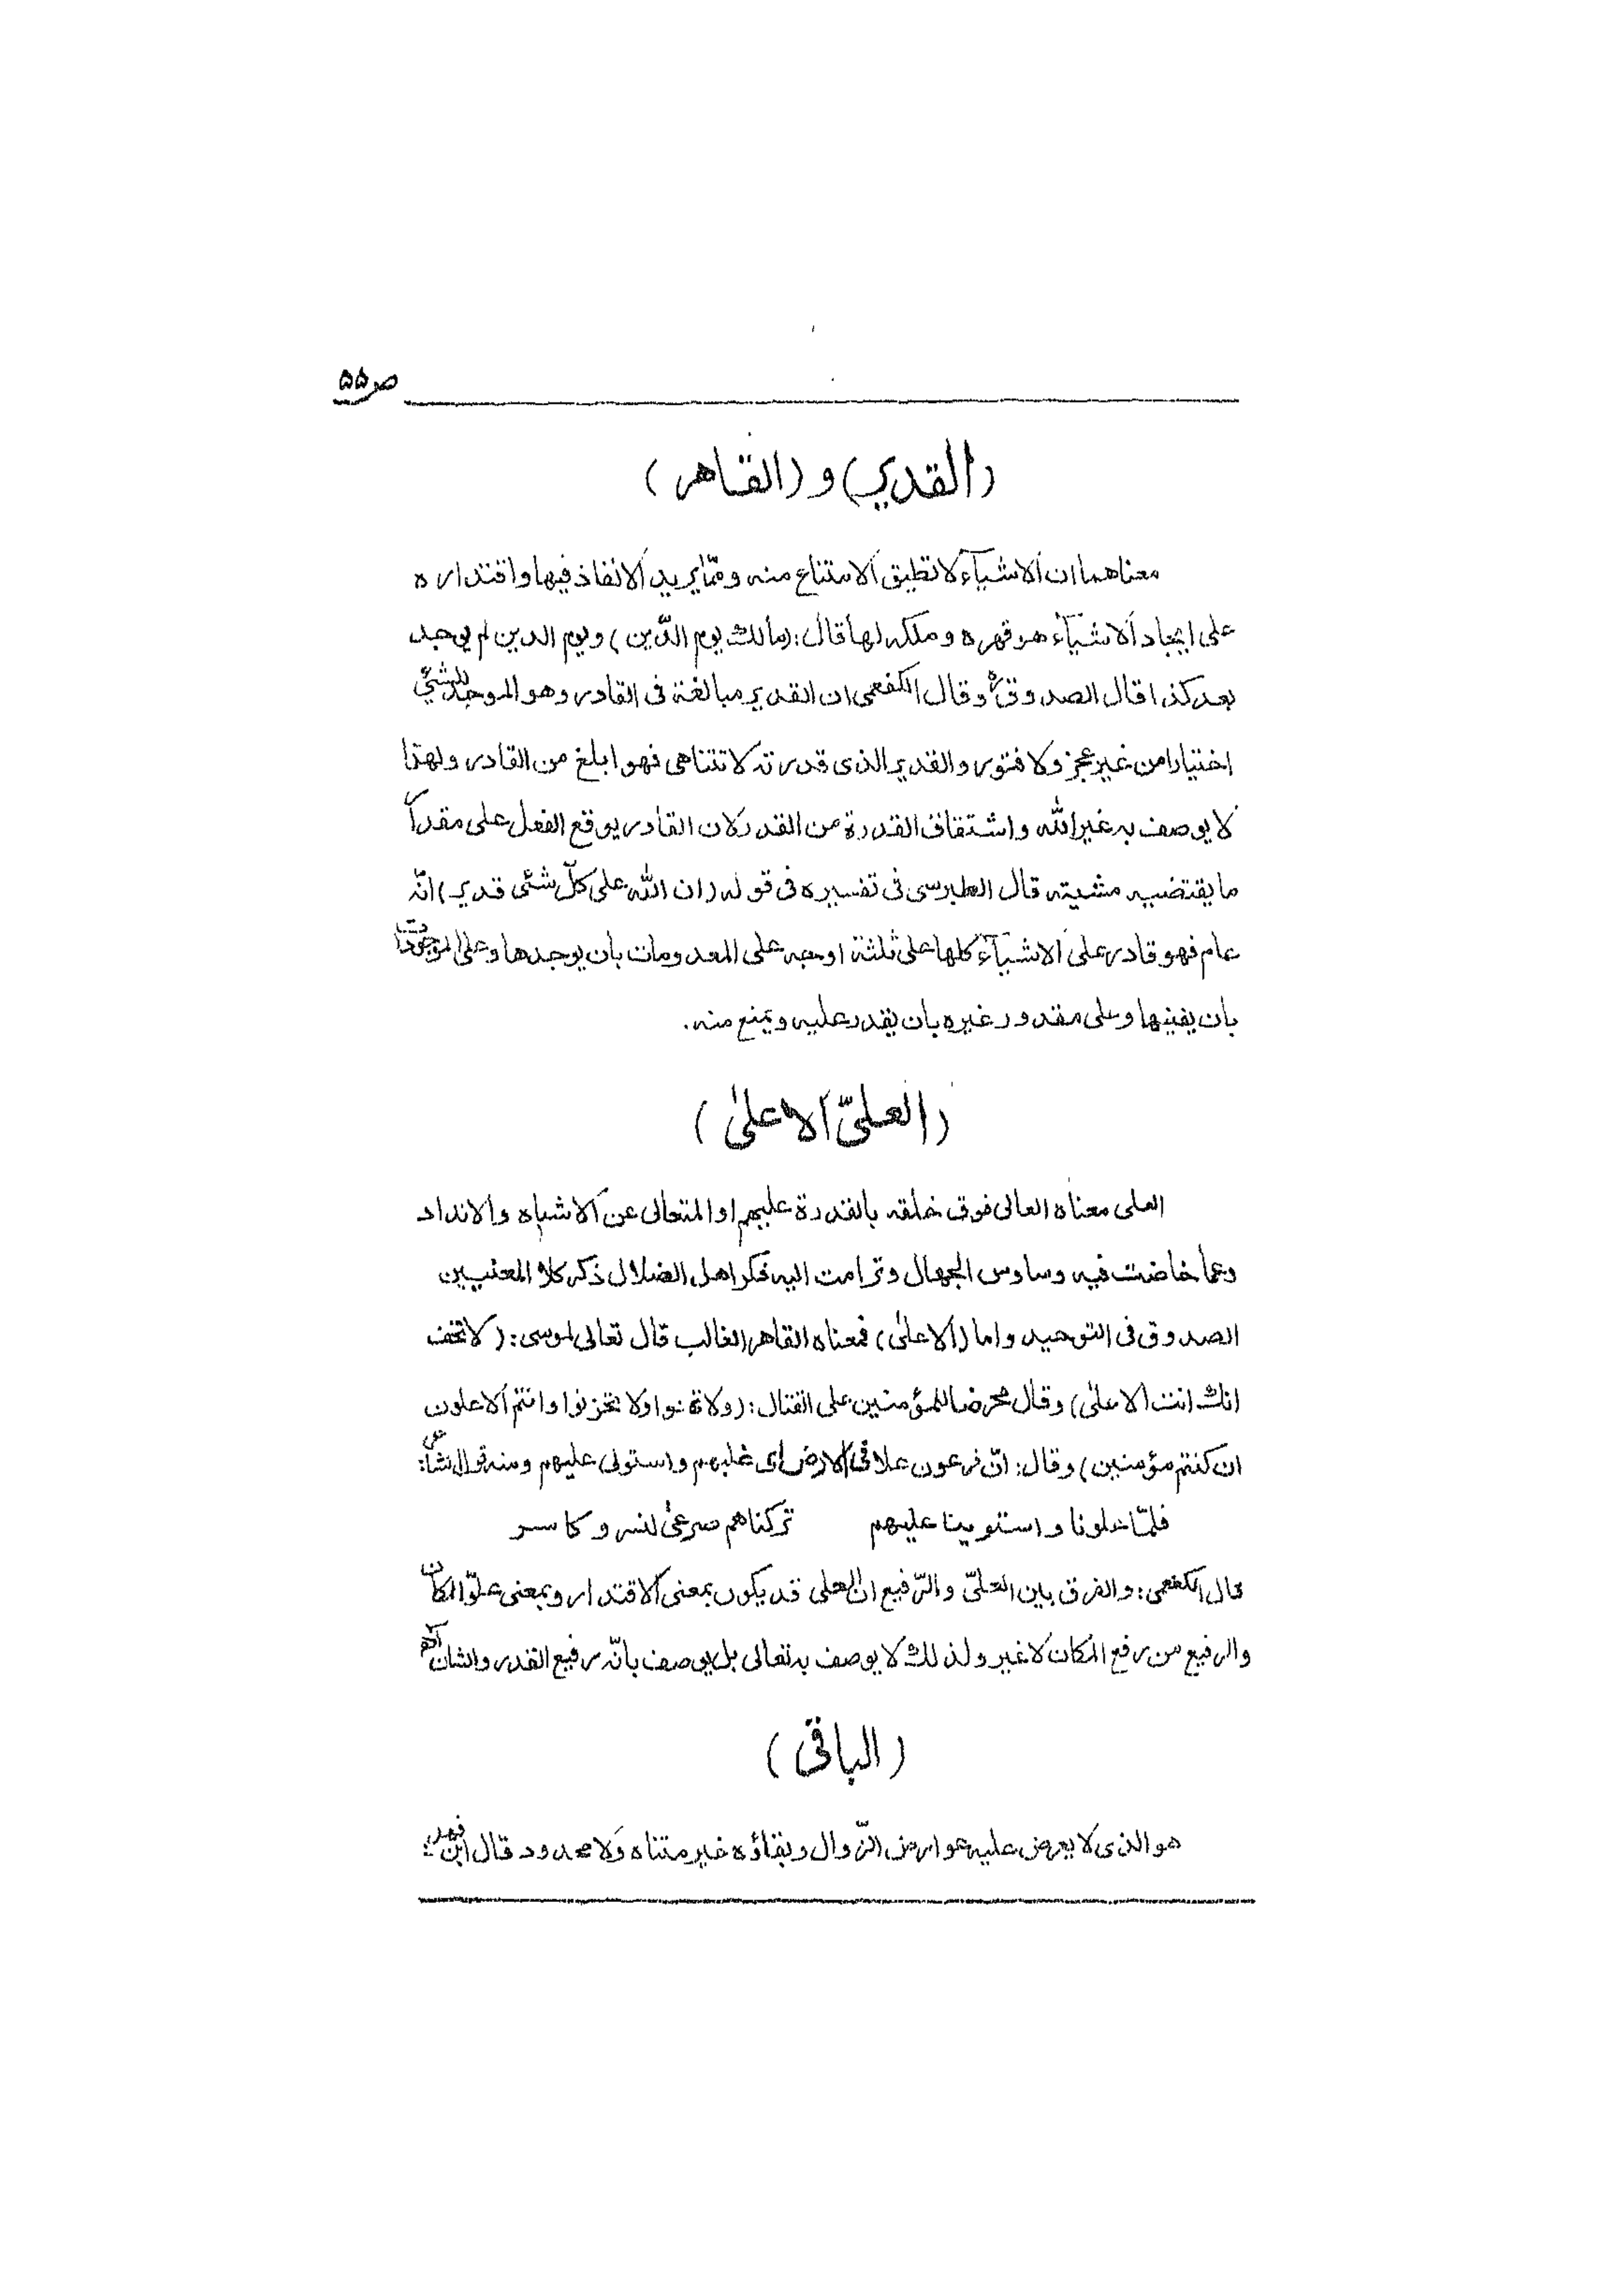 ص ۵۵
(القدير) و (القاهر)
معناهما ان الاشيآء لا تطيق الامتناع منه وممّا يريد الانفاذ فيها واقتداره
على ايجاد الاشيآء هو قهره وملكه لها قال: (مالك يوم الدّين) ويوم الدين لم يوجد
بعد كذا قال الصدوق ره وقال الكفعمى ان القدير مبالغة فى القادر وهو الموجد للشئ
اختيارا من غير عجز ولا فتور والقدير الذى قدرته لا تتناهى فهو ابلغ من القادر ولهذا
لا يوصف به غير الله واشتقاق القدرة من القدر لان القادر يوقع الفعل على مقدار
ما يقتضيه مشيته قال الطبرسى فى تفسيره فى قوله (ان الله على كلّ شئى قدير) انّه
عام فهو قادر على الاشيآء كلها على ثلثة اوجه على المعدومات بأن يوجدها وعلى الموجودات
بان يفنيها وعلى مقدور غيره بان يقدر عليه ويمنع منه.
(العلىّ الاعلىٰ)
العلى معناه العالى فوق خلقه بالقدرة عليهم او المتعالى عن الاشباه والانداد
وعما خاضت فيه وساوس الجهال وترامت اليه فكر اهل الضلال ذكر كلا المعنيين
الصدوق فى التوحيد واما (الاعلىٰ) فمعناه القاهر الغالب قال تعالى لموسى: (لا تخف
انك انت الاعلىٰ) وقال محرضا للمؤمنين على القتال: (ولا تهنوا ولا تحزنوا وانتم الاعلون
ان كنتم مؤمنين) وقال: انّ فرعون علا فى الارض اى غلبهم واستولى عليهم ومنه قول الشاعر:
فلمّا علونا واستوينا عليهم تركناهم صرعىٰ لنسر وكاسر
قال الكفعمى: والفرق بين العلىّ والرّفيع ان العلى قد يكون بمعنى الاقتدار وبمعنى علوّ المكان
والرفيع من رفع المكان لا غير ولذلك لا يوصف به تعالى بل يوصف بانّه رفيع القدر والشان
(الباقى)
هو الذى لا يعرض عليه عوارض الزّوال وبقاؤه غير متناه ولا محدود قال ابن فهد: